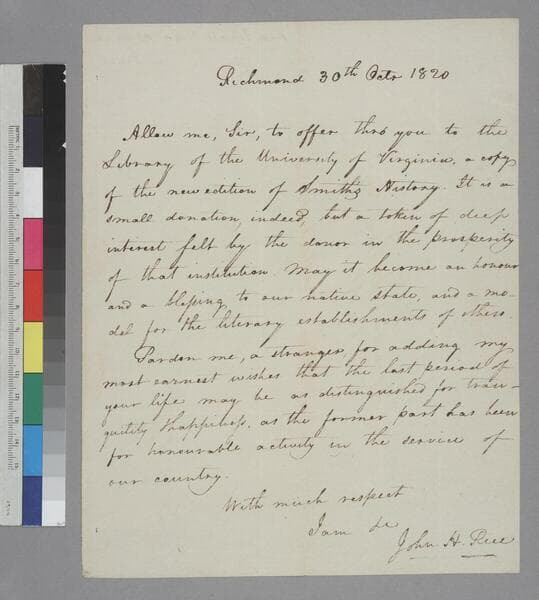 Richmond 30th Octr 1820
Allow me, Sir, to offer thro you to the
Library of the University of Virginia, a copy
of the new edition of Smith's History. It is a
small donation, indeed, but a token of deep
interest felt by the donor in the prosperity
of that institution. May it become an honour
and a blessing to our native state, and a mo-
del for the literary establishments of others.
Pardon me, a stranger, for adding my
most earnest wishes that the last period of
your life may be as distinguished for tran-
quility & happiness, as the former part has been
for honourable activity in the service of
our country.
With much respect
I am &c
John H. Rice